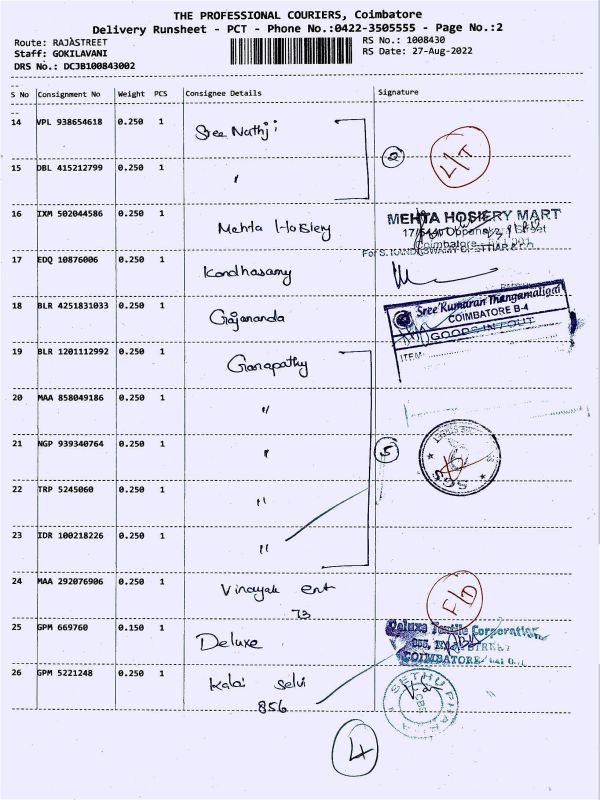 THE PROFESSIONAL COURIERS, Coimbatore
Delivery Runsheet - PCT - Phone No.:0422-3505555 - Page No.:2
Route: RAJASTREET RS No.: 1008430
Staff: GOKILAVANI RS Date: 27-Aug-2022
DRS No.: DCJB100843002
S No Consignment No Weight PCS Consignee Details Signature
14 VPL 938654618 0.250 1 Sree Nathji
L/T
15 DBL 415212799 0.250 1 "
2
16 IXM 502044586 0.250 1 Mehta Hosiery
MEHTA HOSIERY MART
Oppanakara Street
Coimbatore
17 EDQ 10876006 0.250 1 Kandhasamy
18 BLR 4251831033 0.250 1 Gajananda
Sree Kumaran Thangamaligai
COIMBATORE B-4
GOODS IN / OUT
ITEM
19 BLR 1201112992 0.250 1 Ganapathy
20 MAA 858049186 0.250 1 "
21 NGP 939340764 0.250 1 "
5
SGS
22 TRP 5245060 0.250 1 "
23 IDR 100218226 0.250 1 "
24 MAA 292076906 0.250 1 Vinayak Ent
73
F/D
25 GPM 669760 0.150 1 Deluxe
Deluxe Textile Corporation
STREET
COIMBATORE
26 GPM 5221248 0.250 1 Kalai Selvi
856
SETHU
CBE
4